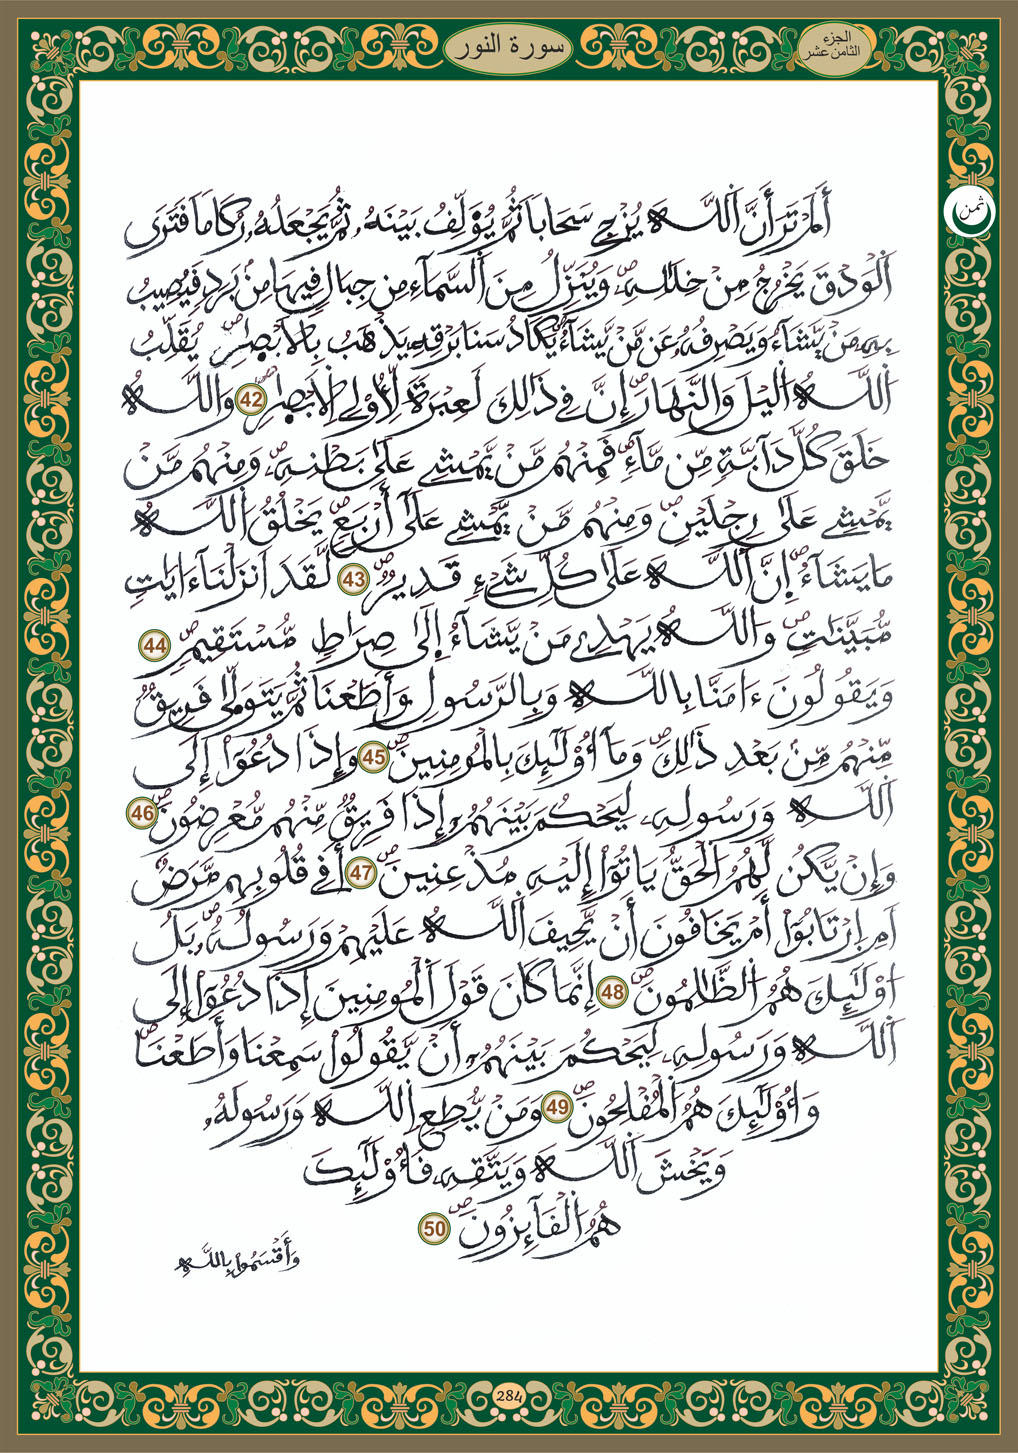 سورة النور
الجزء
الثامن عشر
ثمن
أَلَمْ تَرَ أَنَّ اَللَّهَ يُزْجِے سَحَاباً ثُمَّ يُؤَلِّفُ بَيْنَهُۥ ثُمَّ يَجْعَلُهُۥ رُكَاماً فَتَرَى
اَلْوَدْقَ يَخْرُجُ مِنْ خِلَٰلِهِۦۖ وَيُنَزِّلُ مِنَ اَلسَّمَآءِ مِن جِبَالٖ فِيهَا مِنۢ بَرَدٖ فَيُصِيبُ
بِهِۦ مَنْ يَّشَآءُ وَيَصْرِفُهُۥ عَن مَّنْ يَّشَآءُۖ يَكَادُ سَنَا بَرْقِهِۦ يَذْهَبُ بِالَابْصٰ۪رِۖ يُقَلِّبُ
اُللَّهُ اُليْلَ وَالنَّهَارَۖ إِنَّ فِے ذَٰلِكَ لَعِبْرَةٗ لِّأُوْلِے اِلَابْصٰ۪رِۖ 42 وَاللَّهُ
خَلَقَ كُلَّ دَآبَّةٖ مِّن مَّآءٖۖ فَمِنْهُم مَّنْ يَّمْشِے عَلَىٰ بَطْنِهِۦۖ وَمِنْهُم مَّنْ
يَّمْشِے عَلَىٰ رِجْلَيْنِۖ وَمِنْهُم مَّنْ يَّمْشِے عَلَىٰٓ أَرْبَعٖۖ يَخْلُقُ اُللَّهُ
مَا يَشَآءُۖ اِنَّ اَللَّهَ عَلَىٰ كُلِّ شَےْءٖ قَدِيرٞۖ 43 لَّقَدَ اَنزَلْنَآ ءَايَٰتٖ
مُّبَيَّنَٰتٖۖ وَاللَّهُ يَهْدِے مَنْ يَّشَآءُ اِلَىٰ صِرَٰطٖ مُّسْتَقِيمٖۖ 44
وَيَقُولُونَ ءَامَنَّا بِاللَّهِ وَبِالرَّسُولِ وَأَطَعْنَا ثُمَّ يَتَوَلَّىٰ فَرِيقٞ
مِّنْهُم مِّنۢ بَعْدِ ذَٰلِكَۖ وَمَآ أُوْلَٰٓئِكَ بِالْمُومِنِينَۖ 45 وَإِذَا دُعُوٓاْ إِلَى
اَللَّهِ وَرَسُولِهِۦ لِيَحْكُمَ بَيْنَهُمُۥٓ إِذَا فَرِيقٞ مِّنْهُم مُّعْرِضُونَۖ 46
وَإِنْ يَّكُن لَّهُمُ اُلْحَقُّ يَاتُوٓاْ إِلَيْهِ مُذْعِنِينَۖ 47 أَفِے قُلُوبِهِم مَّرَضٌ
اَمِ اِرْتَابُوٓاْ أَمْ يَخَافُونَ أَنْ يَّحِيفَ اَللَّهُ عَلَيْهِمْ وَرَسُولُهُۥۖ بَلُ
اوْلَٰٓئِكَ هُمُ اُلظَّٰلِمُونَۖ 48 إِنَّمَا كَانَ قَوْلَ اَلْمُومِنِينَ إِذَا دُعُوٓاْ إِلَى
اَللَّهِ وَرَسُولِهِۦ لِيَحْكُمَ بَيْنَهُمُۥٓ أَنْ يَّقُولُواْ سَمِعْنَا وَأَطَعْنَاۖ
وَأُوْلَٰٓئِكَ هُمُ اُلْمُفْلِحُونَۖ 49 وَمَنْ يُّطِعِ اِللَّهَ وَرَسُولَهُۥ
وَيَخْشَ اَللَّهَ وَيَتَّقِهِۦ فَأُوْلَٰٓئِكَ
هُمُ اُلْفَآئِزُونَۖ 50
وَأَقْسَمُواْ بِاللَّهِ
284